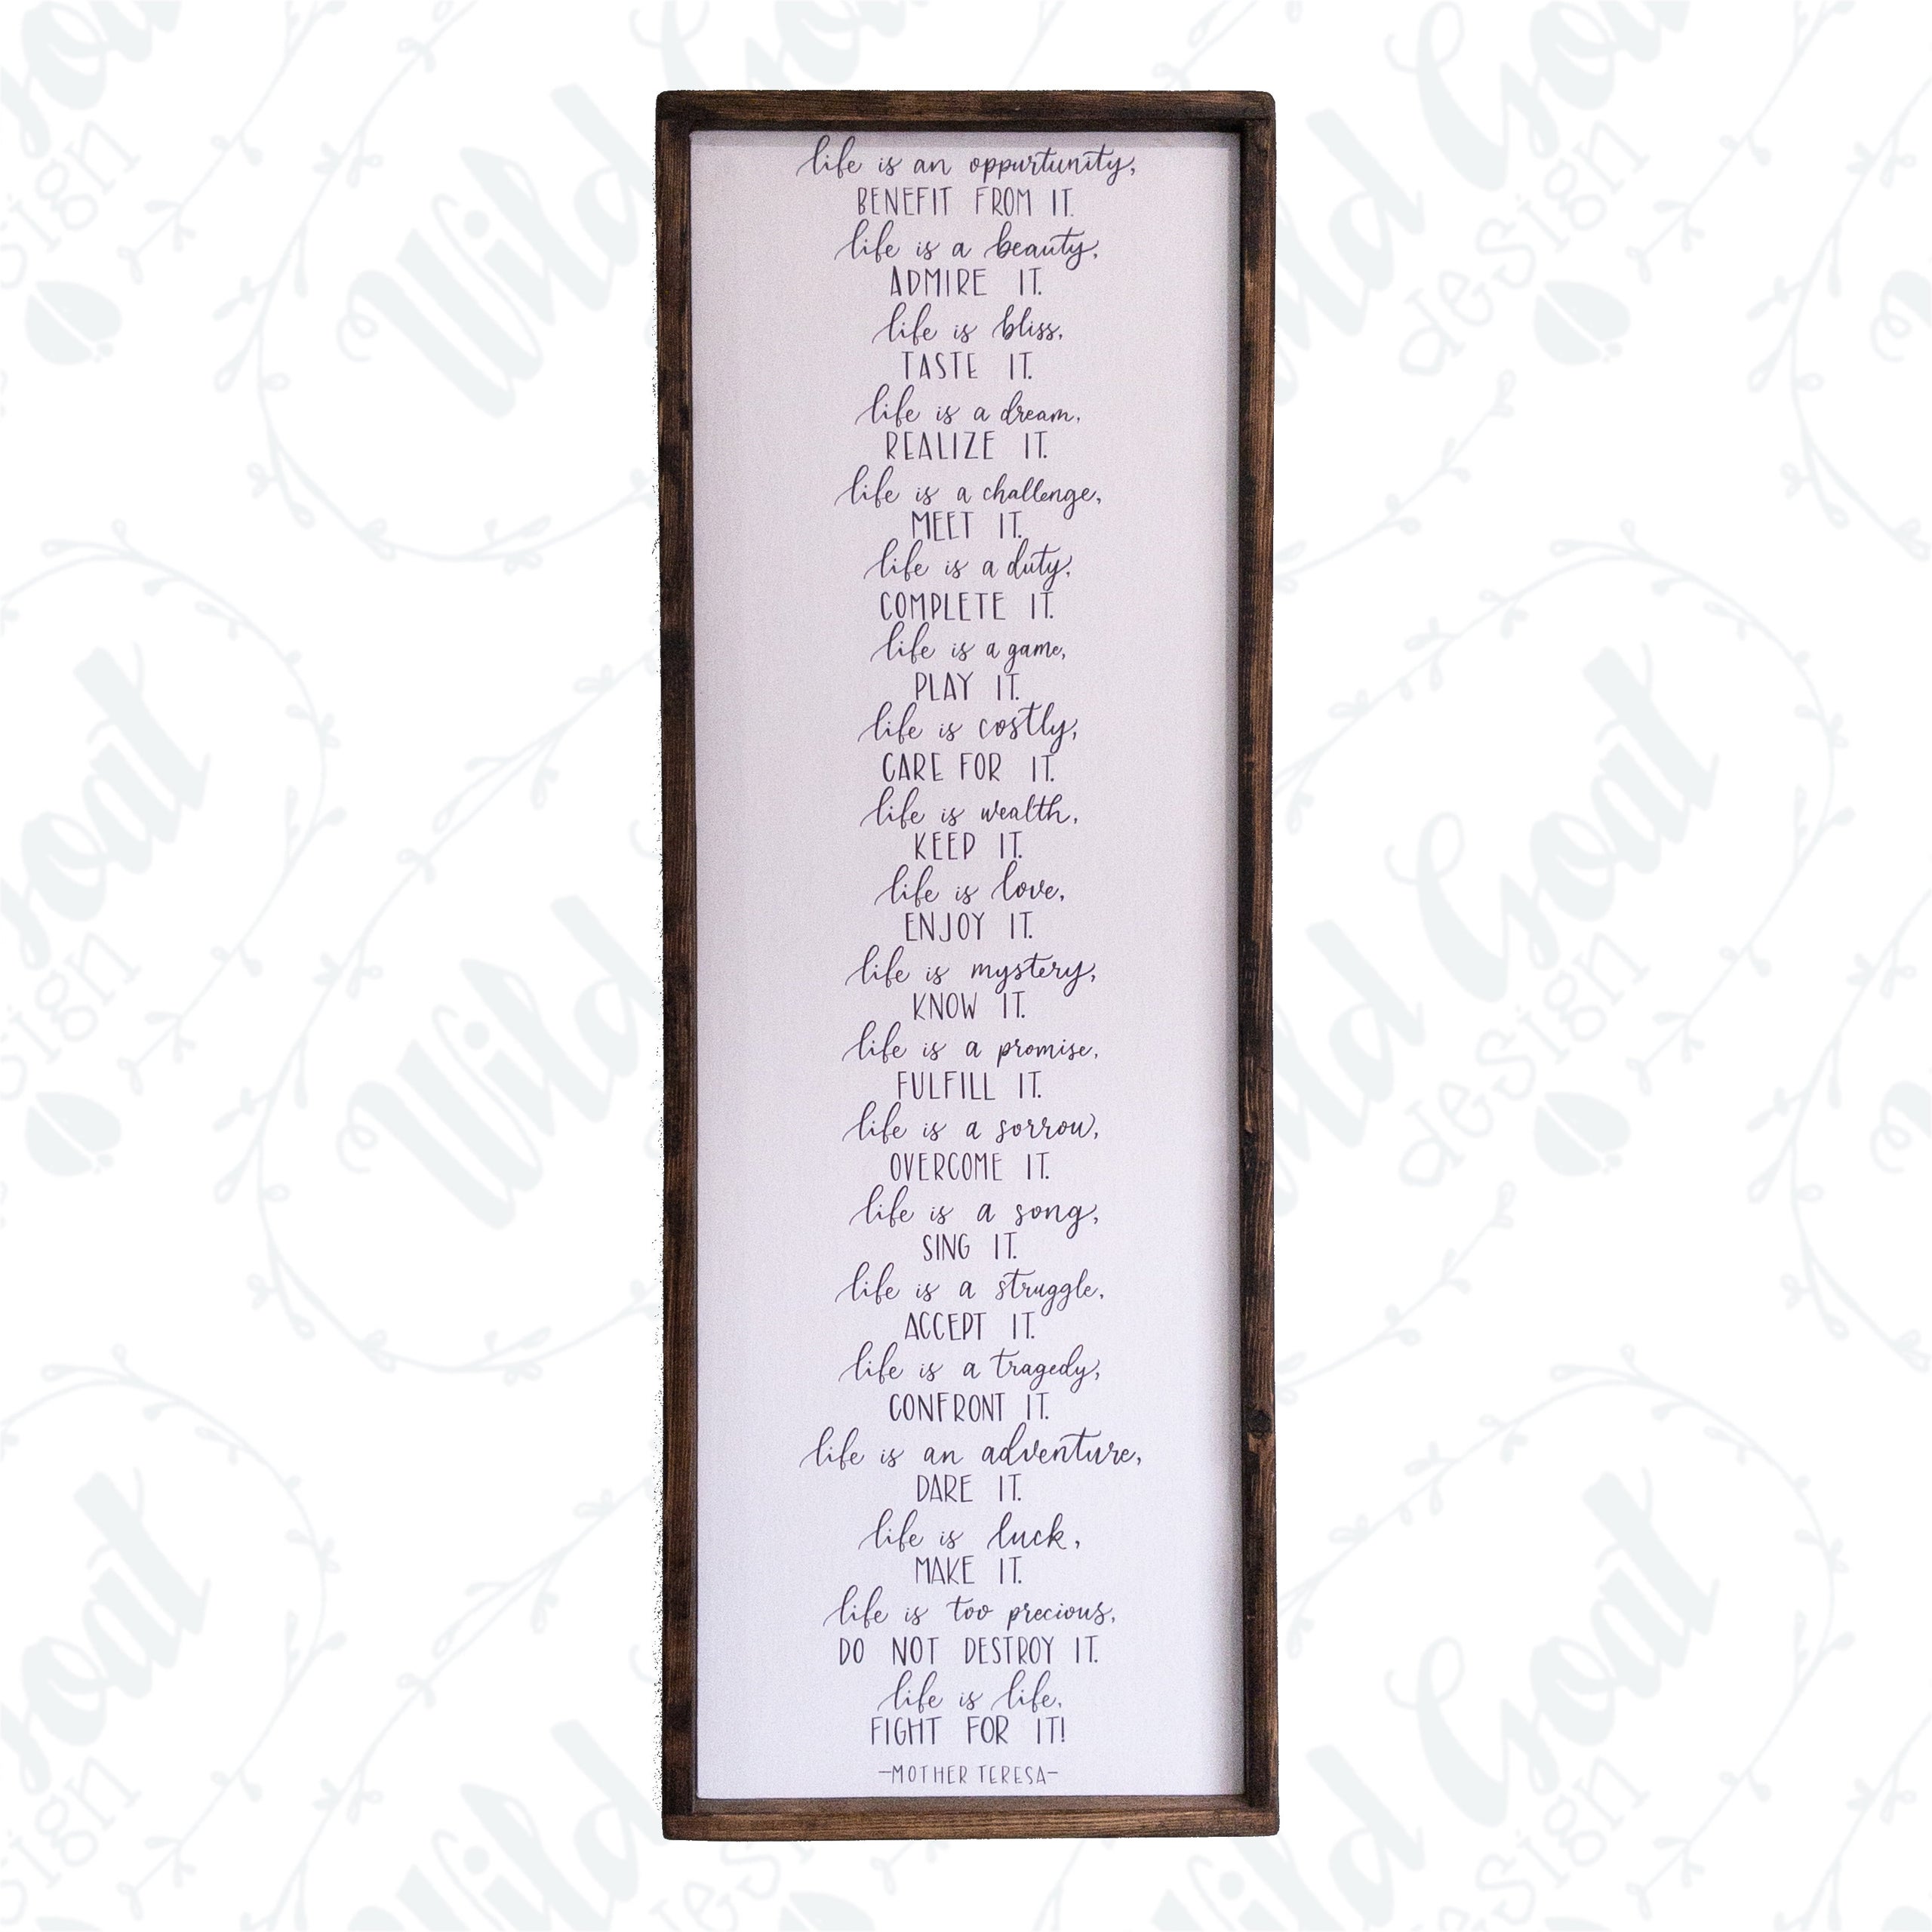 life is an oppurtunity,
BENEFIT FROM IT.
life is a beauty,
ADMIRE IT.
life is bliss,
TASTE IT.
life is a dream,
REALIZE IT.
life is a challenge,
MEET IT.
life is a duty,
COMPLETE IT.
life is a game,
PLAY IT.
life is costly,
CARE FOR IT.
life is wealth,
KEEP IT.
life is love,
ENJOY IT.
life is mystery,
KNOW IT.
life is a promise,
FULFILL IT.
life is a sorrow,
OVERCOME IT.
life is a song,
SING IT.
life is a struggle,
ACCEPT IT.
life is a tragedy,
CONFRONT IT.
life is an adventure,
DARE IT.
life is luck,
MAKE IT.
life is too precious,
DO NOT DESTROY IT.
life is life,
FIGHT FOR IT!
-MOTHER TERESA-
Wild Goat
design